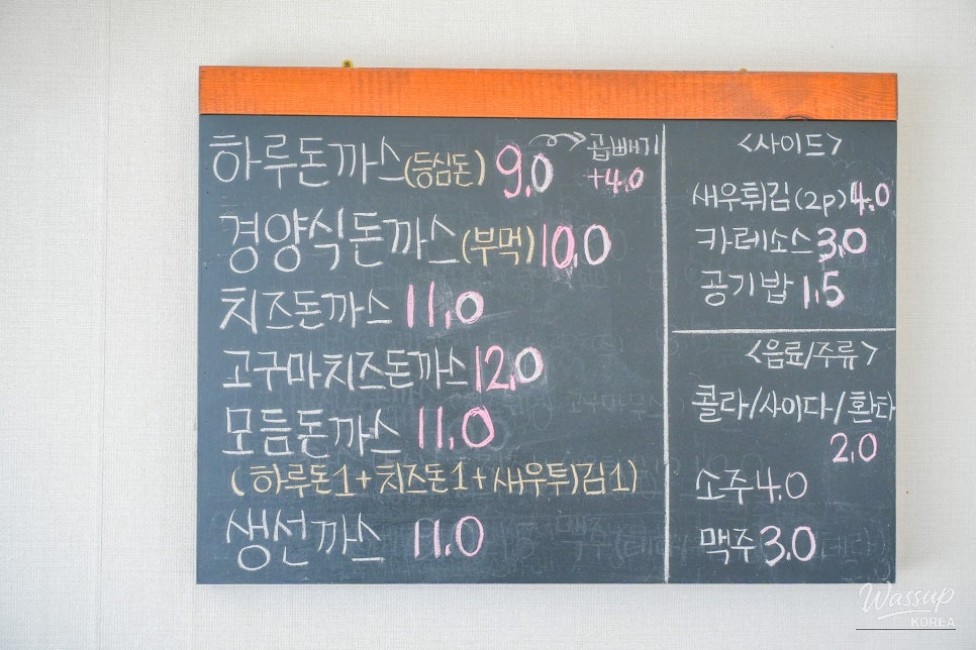 하루돈까스(등심돈) 9.0 곱빼기
+4.0
경양식돈까스(부먹) 10.0
치즈돈까스 11.0
고구마치즈돈까스 12.0
모듬돈까스 11.0
(하루돈1+치즈돈1+새우튀김1)
생선까스 11.0
<사이드>
새우튀김(2p) 4.0
카레소스 3.0
공기밥 1.5
<음료/주류>
콜라/사이다/환타
2.0
소주 4.0
맥주 3.0
Wassup
KOREA